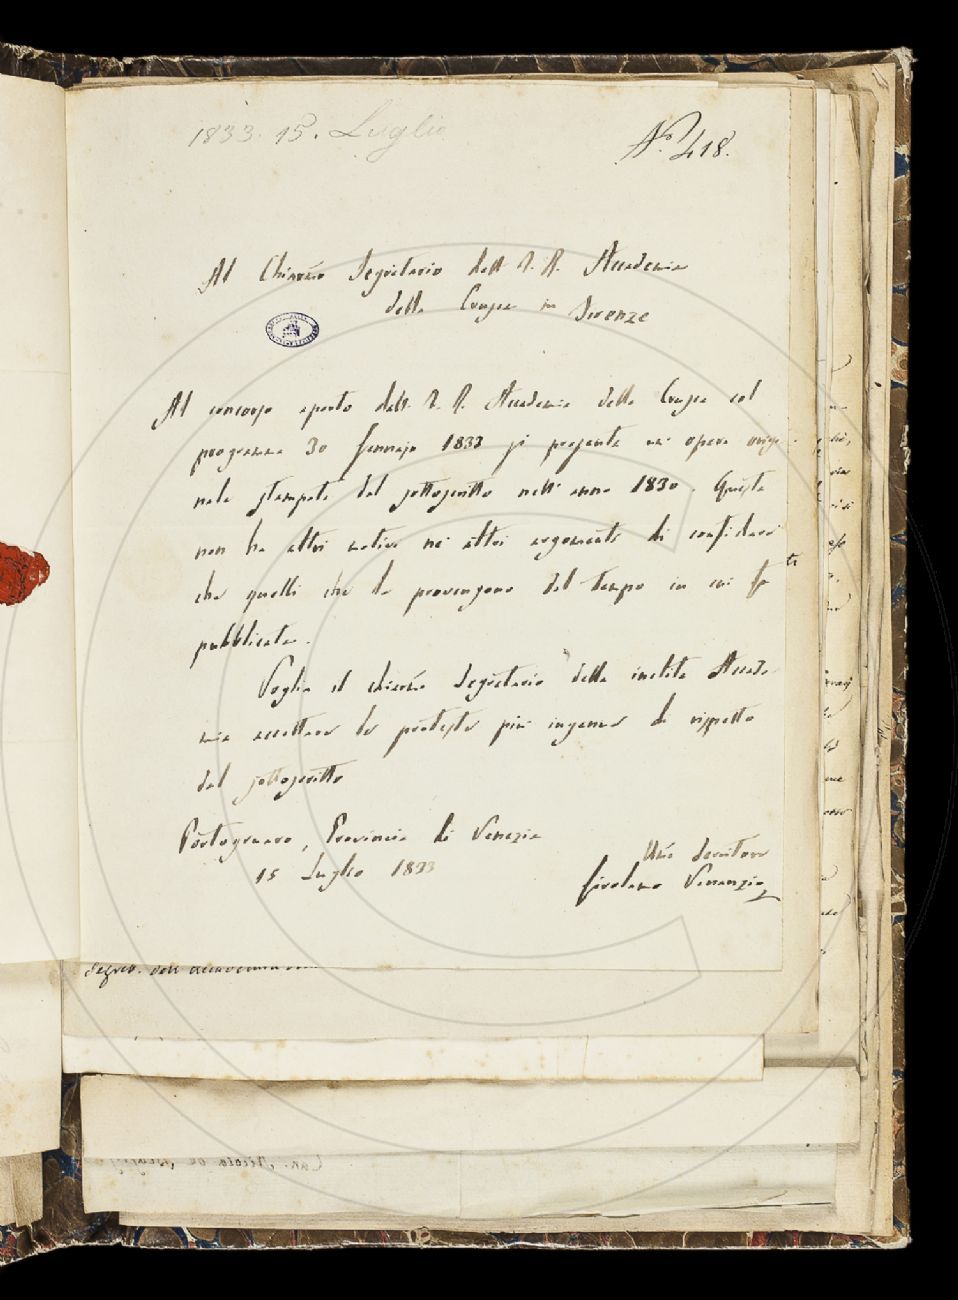 1833. 15. Luglio
N.o 418.
Al Chiarmo Segretario dell'I. R. Accademia
della Crusca in Firenze
Al concorso aperto dall'I. R. Accademia della Crusca col
programma 30 Gennajo 1833 si presenta un' opera origi-
nale stampata dal sottoscritto nell'anno 1830. Questa
non ha altri motivi nè altri argomenti di confidarsi
che quelli che le provengono dal tempo in cui fu
pubblicata.
Voglia il chiarmo Segretario della inclita Accade-
mia accettare le proteste più ingenue di rispetto
del sottoscritto
Portogruaro, Provincia di Venezia
15 Luglio 1833
Umo Servitore
Girolamo Venanzio
Segret. dell'Accademia